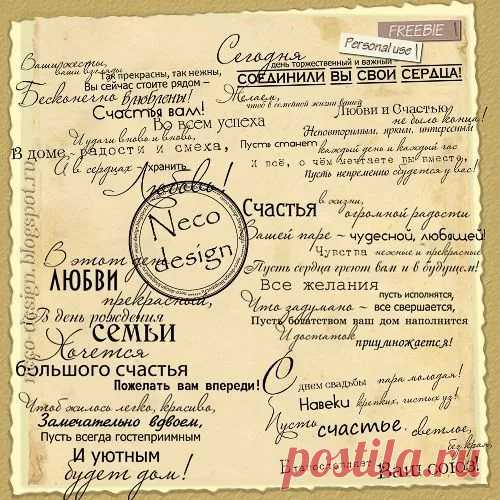 FREEBIE
Personal use
Ваши жесты,
ваши взгляды
Так прекрасны, так нежны,
Вы сейчас стоите рядом –
Бесконечно влюблены!
Счастья вам!
Во всем успеха
И удачи вновь и вновь,
В доме - радости и смеха,
А в сердцах - хранить
Любовь!
Сегодня
день торжественный и важный
СОЕДИНИЛИ ВЫ СВОИ СЕРДЦА!
Желаем,
чтоб в семейной жизни вашей
Любви и Счастью
не было конца!
Неповторимым, ярким, интересным
Пусть станет каждый день и каждый час
И всё, о чём мечтаете вы вместе,
Пусть непременно сбудется у вас!
Neco
design
neco-design.blogspot.ru
В этот день
ЛЮБВИ
прекрасный,
В день рождения
семьи
Хочется
большого счастья
Пожелать вам впереди!
Чтоб жилось легко, красиво,
Замечательно вдвоем,
Пусть всегда гостеприимным
И уютным
будет дом!
Счастья в жизни,
огромной радости
Вашей паре – чудесной, любящей!
Чувства нежные и прекрасные
Пусть сердца греют вам и в будущем!
Все желания
пусть исполнятся,
Что задумано – все свершается,
Пусть богатством ваш дом наполнится
И достаток
приумножается!
С днем свадьбы пара молодая!
Навеки крепких, чистых уз!
Пусть счастье светлое,
без края,
Благословляет Ваш союз.
postila.ru